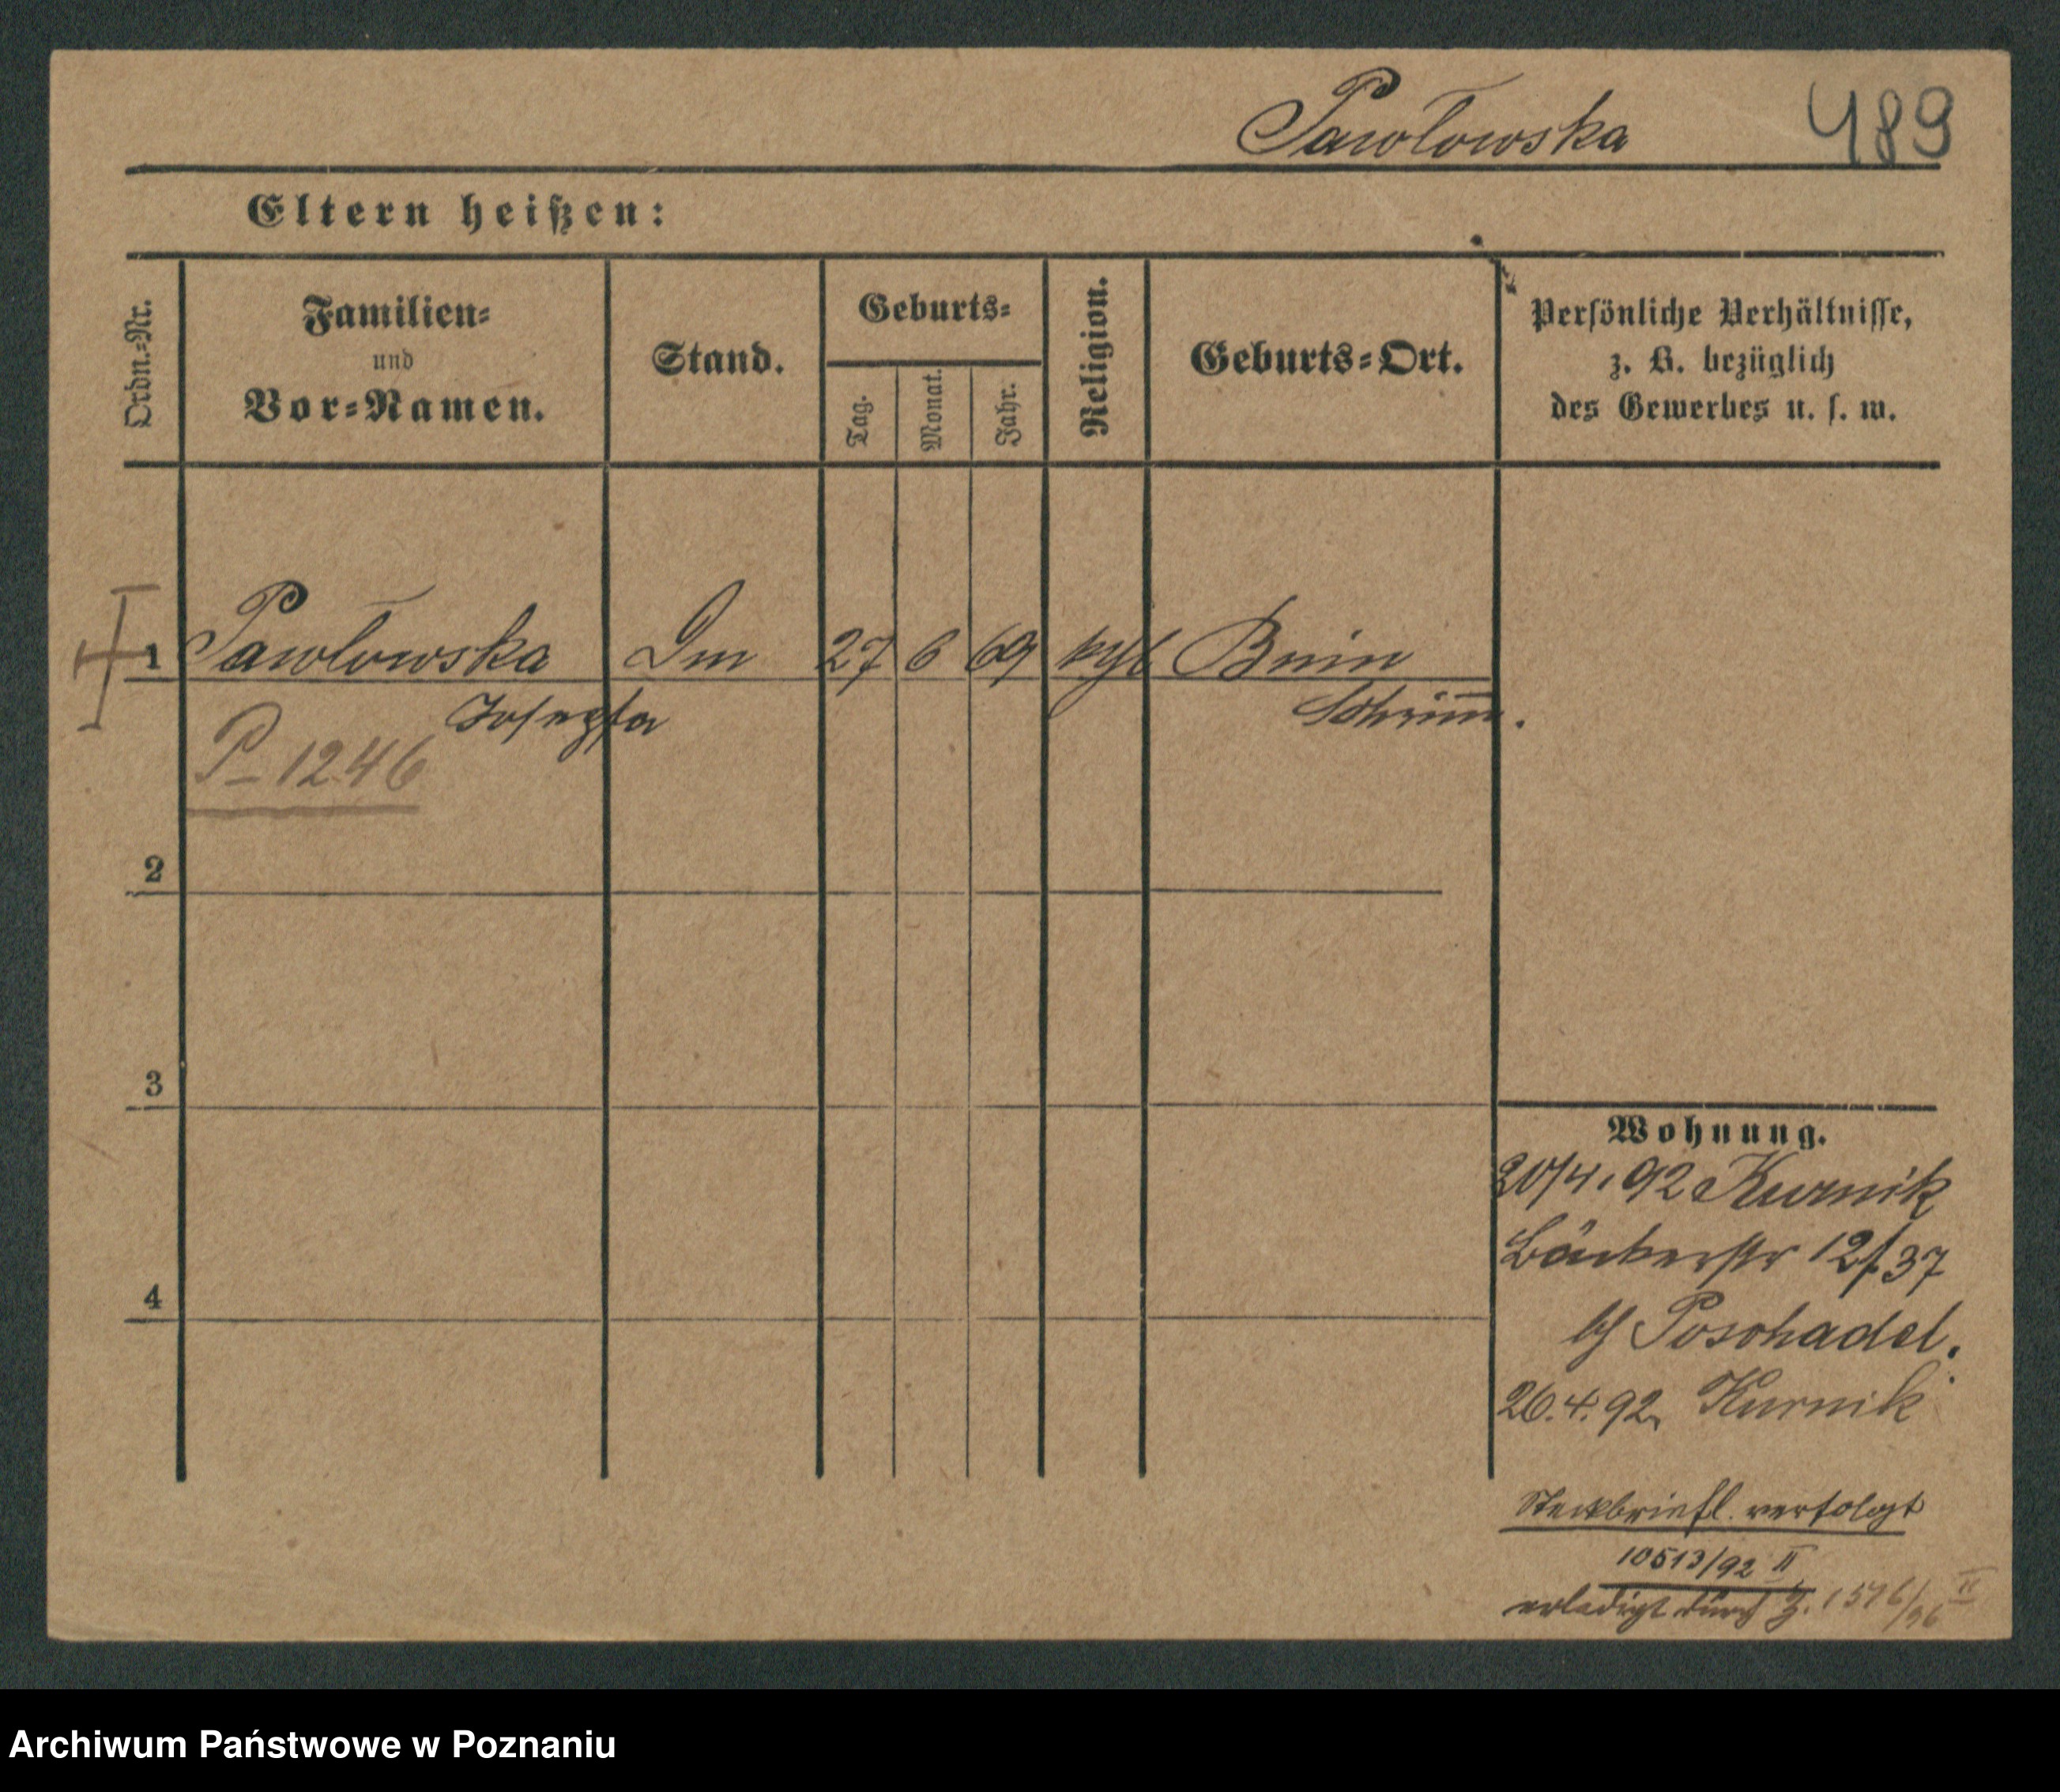 Pawłowska 489
Eltern heißen:
Ordn.-Nr.
Familien-
und
Vor-Namen.
Stand.
Geburts-
Tag.
Monat.
Jahr.
Religion.
Geburts-Ort.
Persönliche Verhältnisse,
z. B. bezüglich
des Gewerbes u. s. w.
1 Pawłowska 27 6 69 Bnin
Josepha Schrimm.
P-1246
2
3
4
Wohnung.
20/4. 92 Kurnik
Bäckerstr 12/37
b/ Poschadel.
26.4.92 Kurnik
Steckbriefl. verfolgt
10513/92 II
erledigt durch Z. 1576/96 II
Archiwum Państwowe w Poznaniu